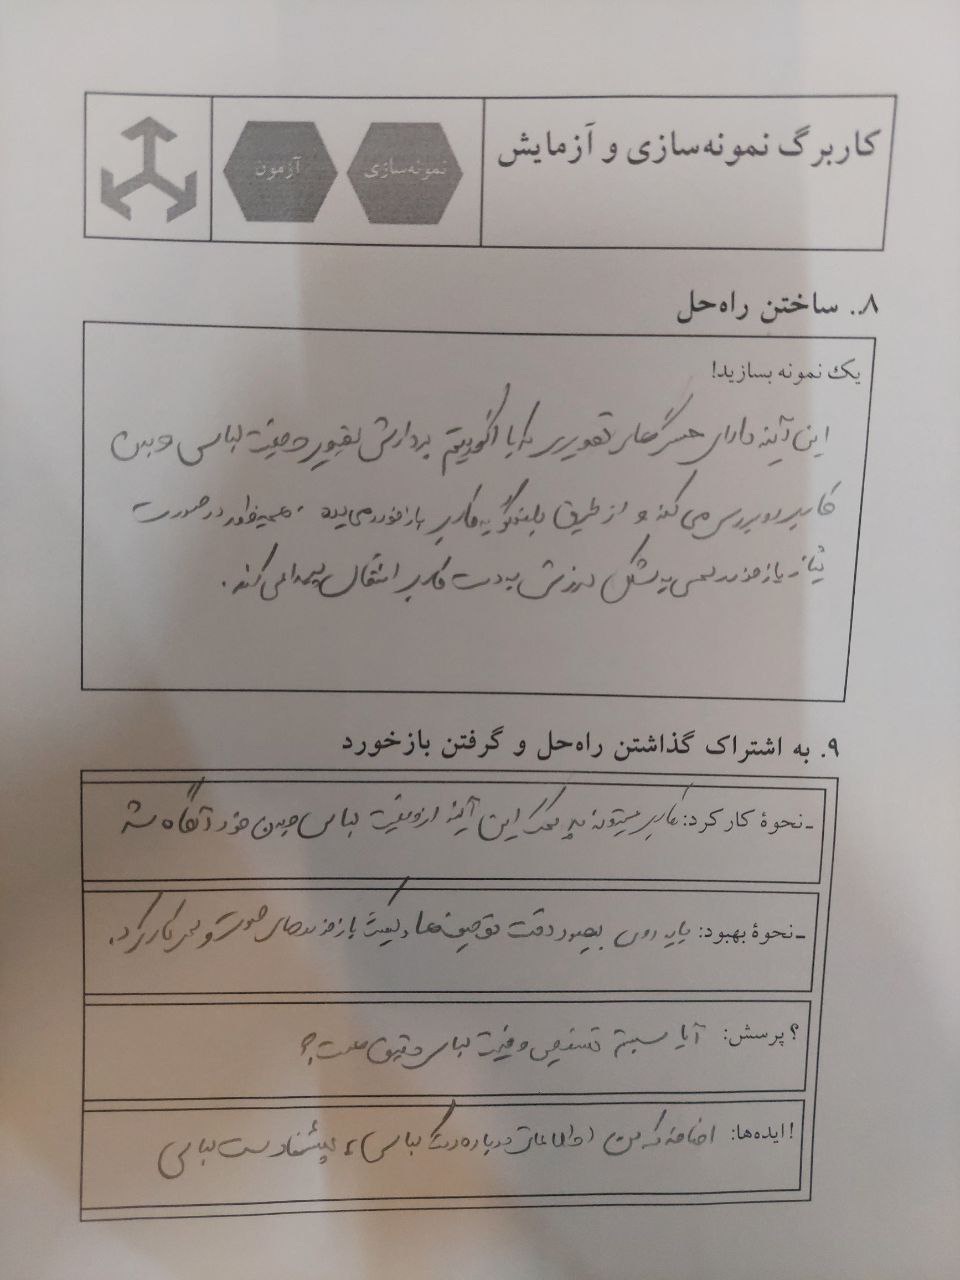 کاربرگ نمونه‌سازی و آزمایش
نمونه‌سازی
آزمون
۸.. ساختن راه‌حل
یک نمونه بسازید!
این آینه دارای حسگرهای تصویری که با الگوریتم پردازش تصویر وضعیت لباس و بدن
کاربر رو بررسی می کنه و از طریق بلندگو به کاربر بازخورد میده . همینطور در صورت
نیاز بازخورد لمسی به شکل لرزش به دست کاربر انتقال پیدا می کند .
۹. به اشتراک گذاشتن راه‌حل و گرفتن بازخورد
ـ نحوهٔ کارکرد: کاربر میتونه به کمک این آینه از وضعیت لباس و بدن خود آگاه شه
ـ نحوهٔ بهبود: باید روی بهبود دقت توصیف‌ها و کیفیت بازخوردهای صوتی و لمسی کار کرد.
؟ پرسش: آیا سیستم تشخیص وضعیت لباس دقیق هست؟
! ایده‌ها: اضافه کردن اطلاعات درباره رنگ لباس، پیشنهاد ست لباس